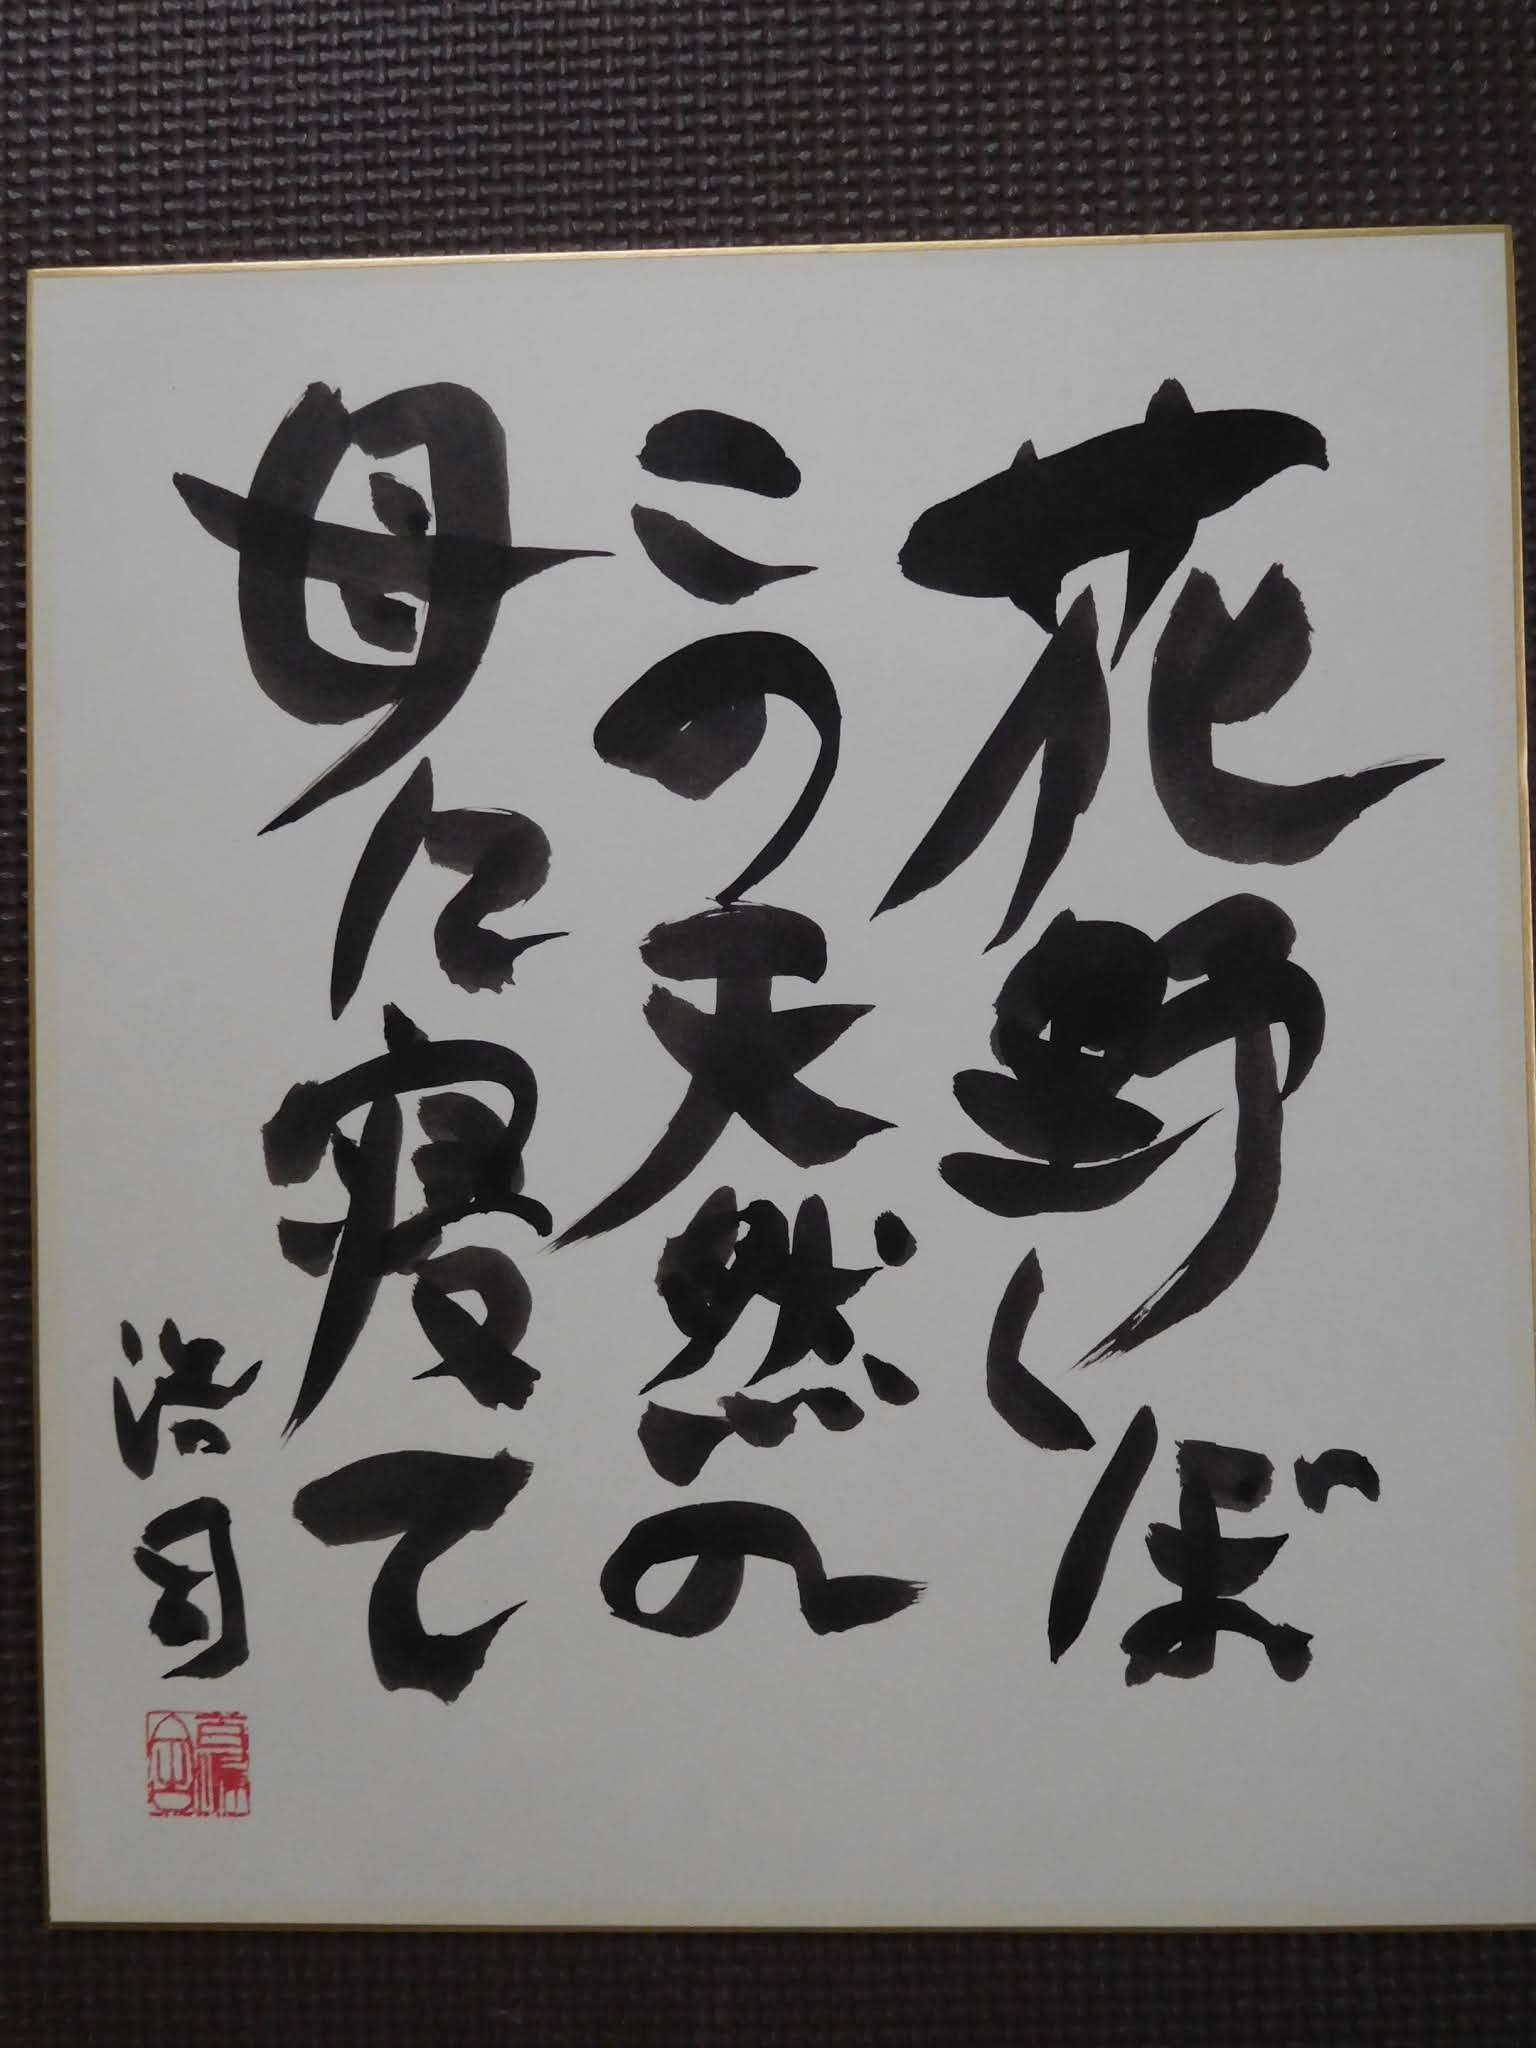 花野しば
この天然の
母に寝て
浩司